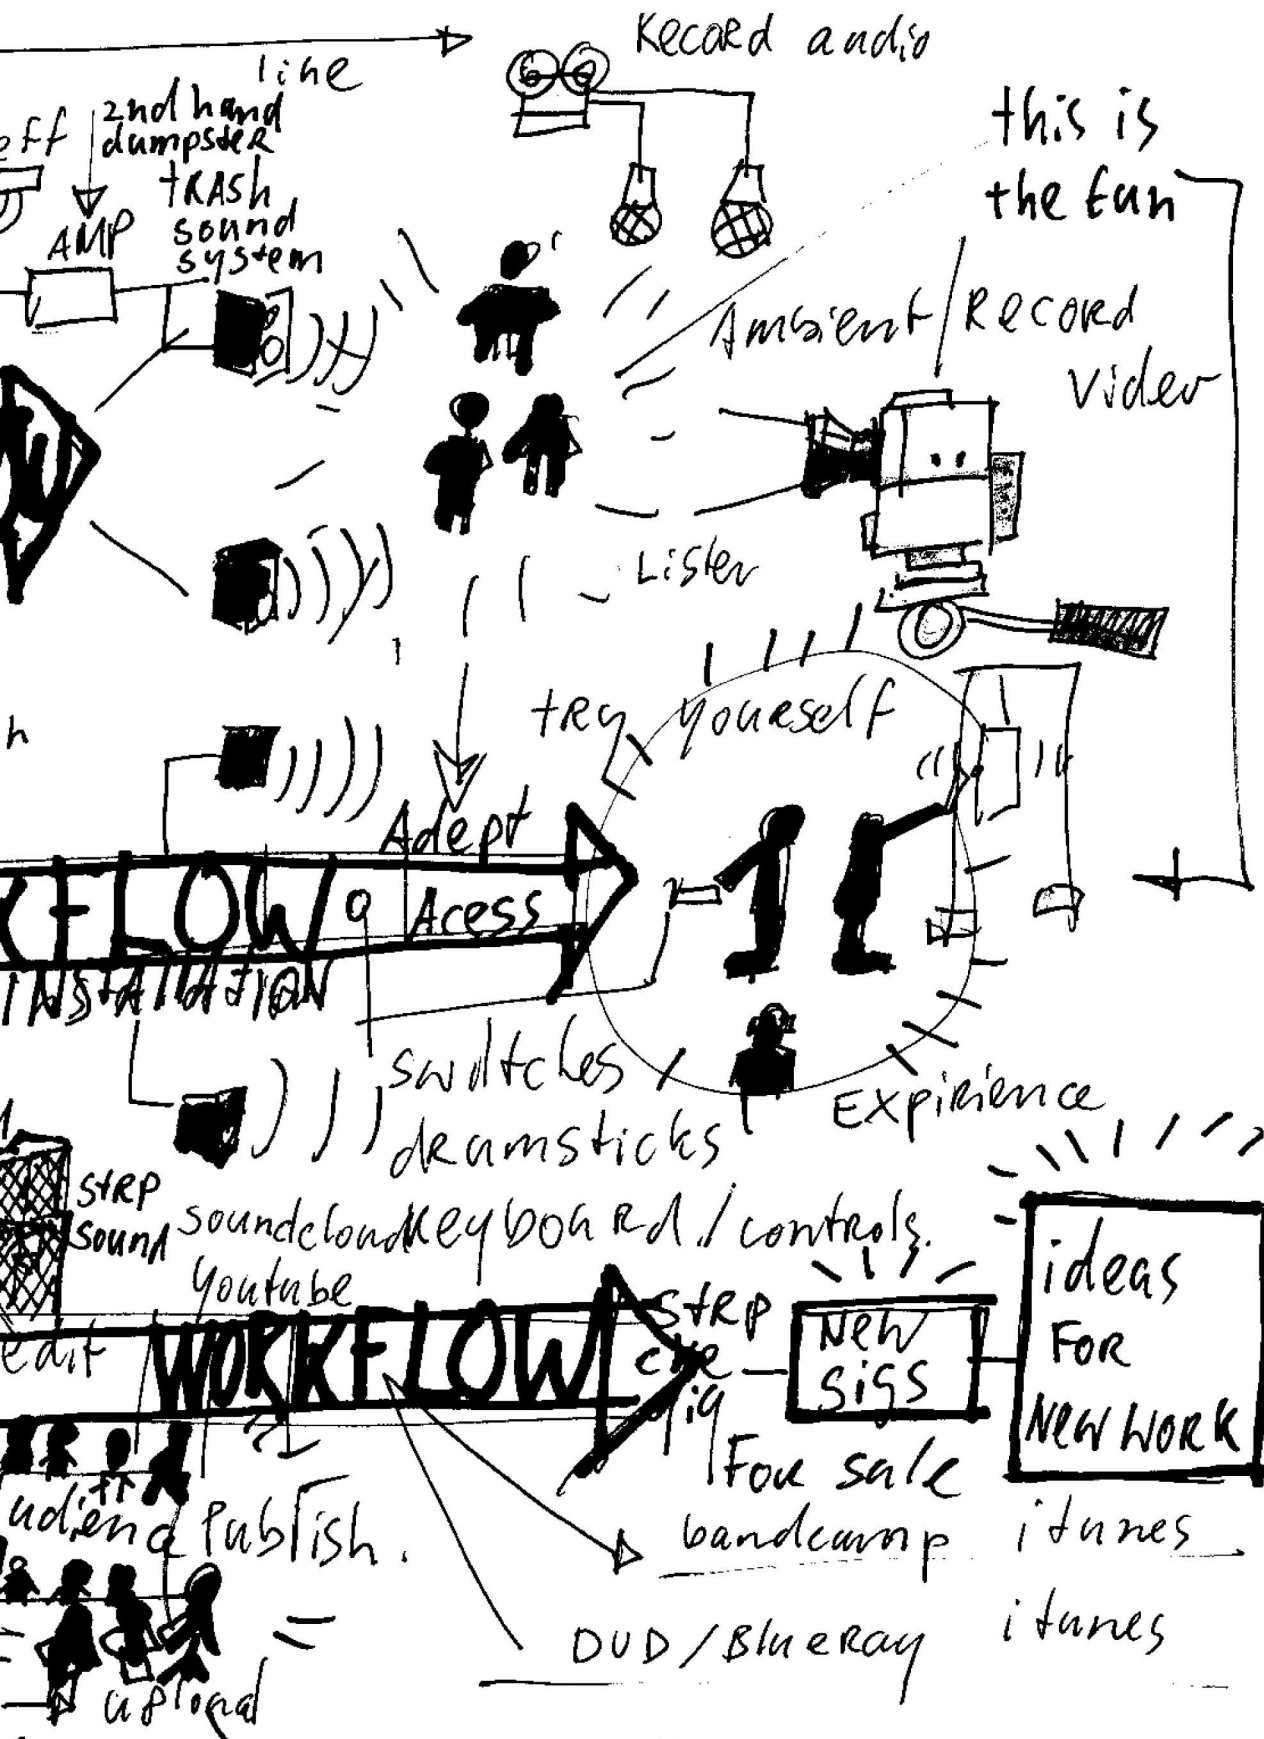 Record audio
line
2nd hand
dumpster
trash
sound
system
eff
AMP
this is
the fun
Ambient / Record
Video
Listen
try yourself
Adept
Acess
KFLOW
INSTALLATION
switches
drumsticks
Expirience
strp
sound
soundcloud keyboard / controls.
youtube
edit
WORKFLOW
strp
New
gigs
ideas
For
New work
For sale
udienc Publish.
bandcamp itunes
itunes
DVD / Blueray
upload